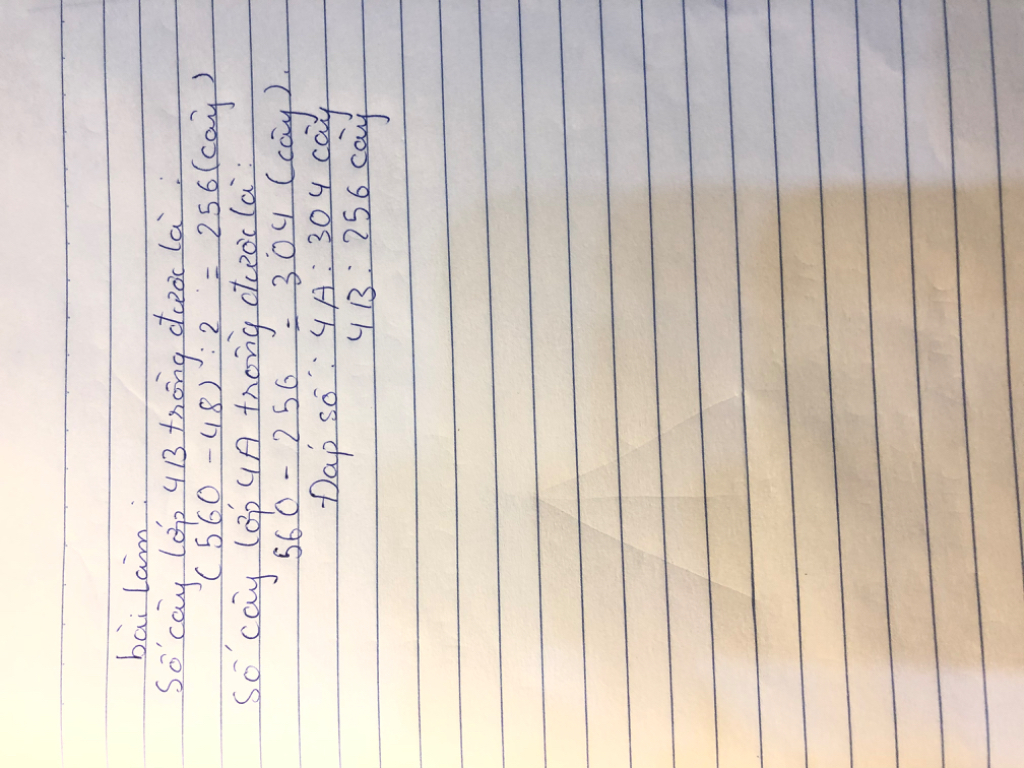 bài làm :
Số cây lớp 4B trồng được là :
( 560 - 48) : 2 = 256 (cây)
Số cây lớp 4A trồng được là :
560 - 256 = 304 (cây).
Đáp số : 4A : 304 cây
4B : 256 cây